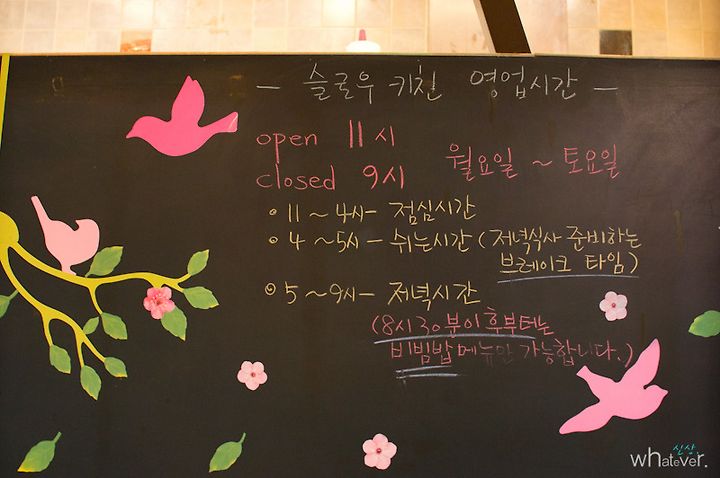 - 슬로우 키친 영업시간 -
open 11시
closed 9시 월요일 ~ 토요일
• 11 ~ 4시 - 점심시간
• 4 ~ 5시 - 쉬는시간 (저녁식사 준비하는
브레이크 타임)
• 5 ~ 9시 - 저녁시간
(8시 30분이후부터는
비빔밥 메뉴만 가능합니다.)
신상
whatever.